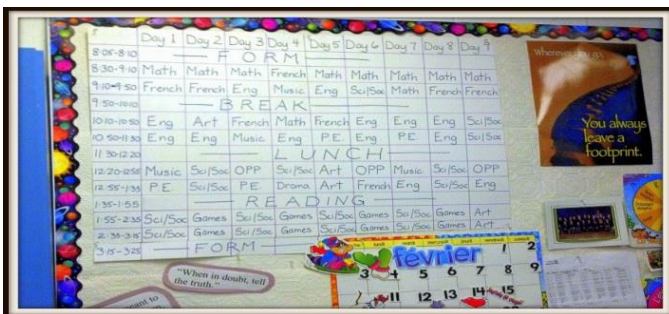 Day 1 Day 2 Day 3 Day 4 Day 5 Day 6 Day 7 Day 8 Day 9
8:05-8:10 FORM
8:30-9:10 Math Math Math French Math Math Math Math Math
9:10-9:50 French French Eng Music Eng Sci/Soc Math French French
9:50-10:10 BREAK
10:10-10:50 Eng Art French Math French Eng Eng Eng Sci/Soc
10:50-11:30 Eng Eng Music Eng P.E. Eng P.E. Eng Sci/Soc
11:30-12:20 LUNCH
12:20-12:55 Music Sci/Soc OPP Sci/Soc Art OPP Music Sci/Soc OPP
12:55-1:35 P.E. Sci/Soc P.E. Drama Art French Eng Sci/Soc Eng
1:35-1:55 READING
1:55-2:35 Sci/Soc Games Sci/Soc Games Sci/Soc Games Sci/Soc Games Art
2:35-3:15 Sci/Soc Games Sci/Soc Games Sci/Soc Games Sci/Soc Games Art
3:15-3:25 FORM
Wherever you go,
You always
leave a
footprint.
"When in doubt, tell
the truth."
février
1 2
3 4 5 6 7 8 9
11 12 13 14 15